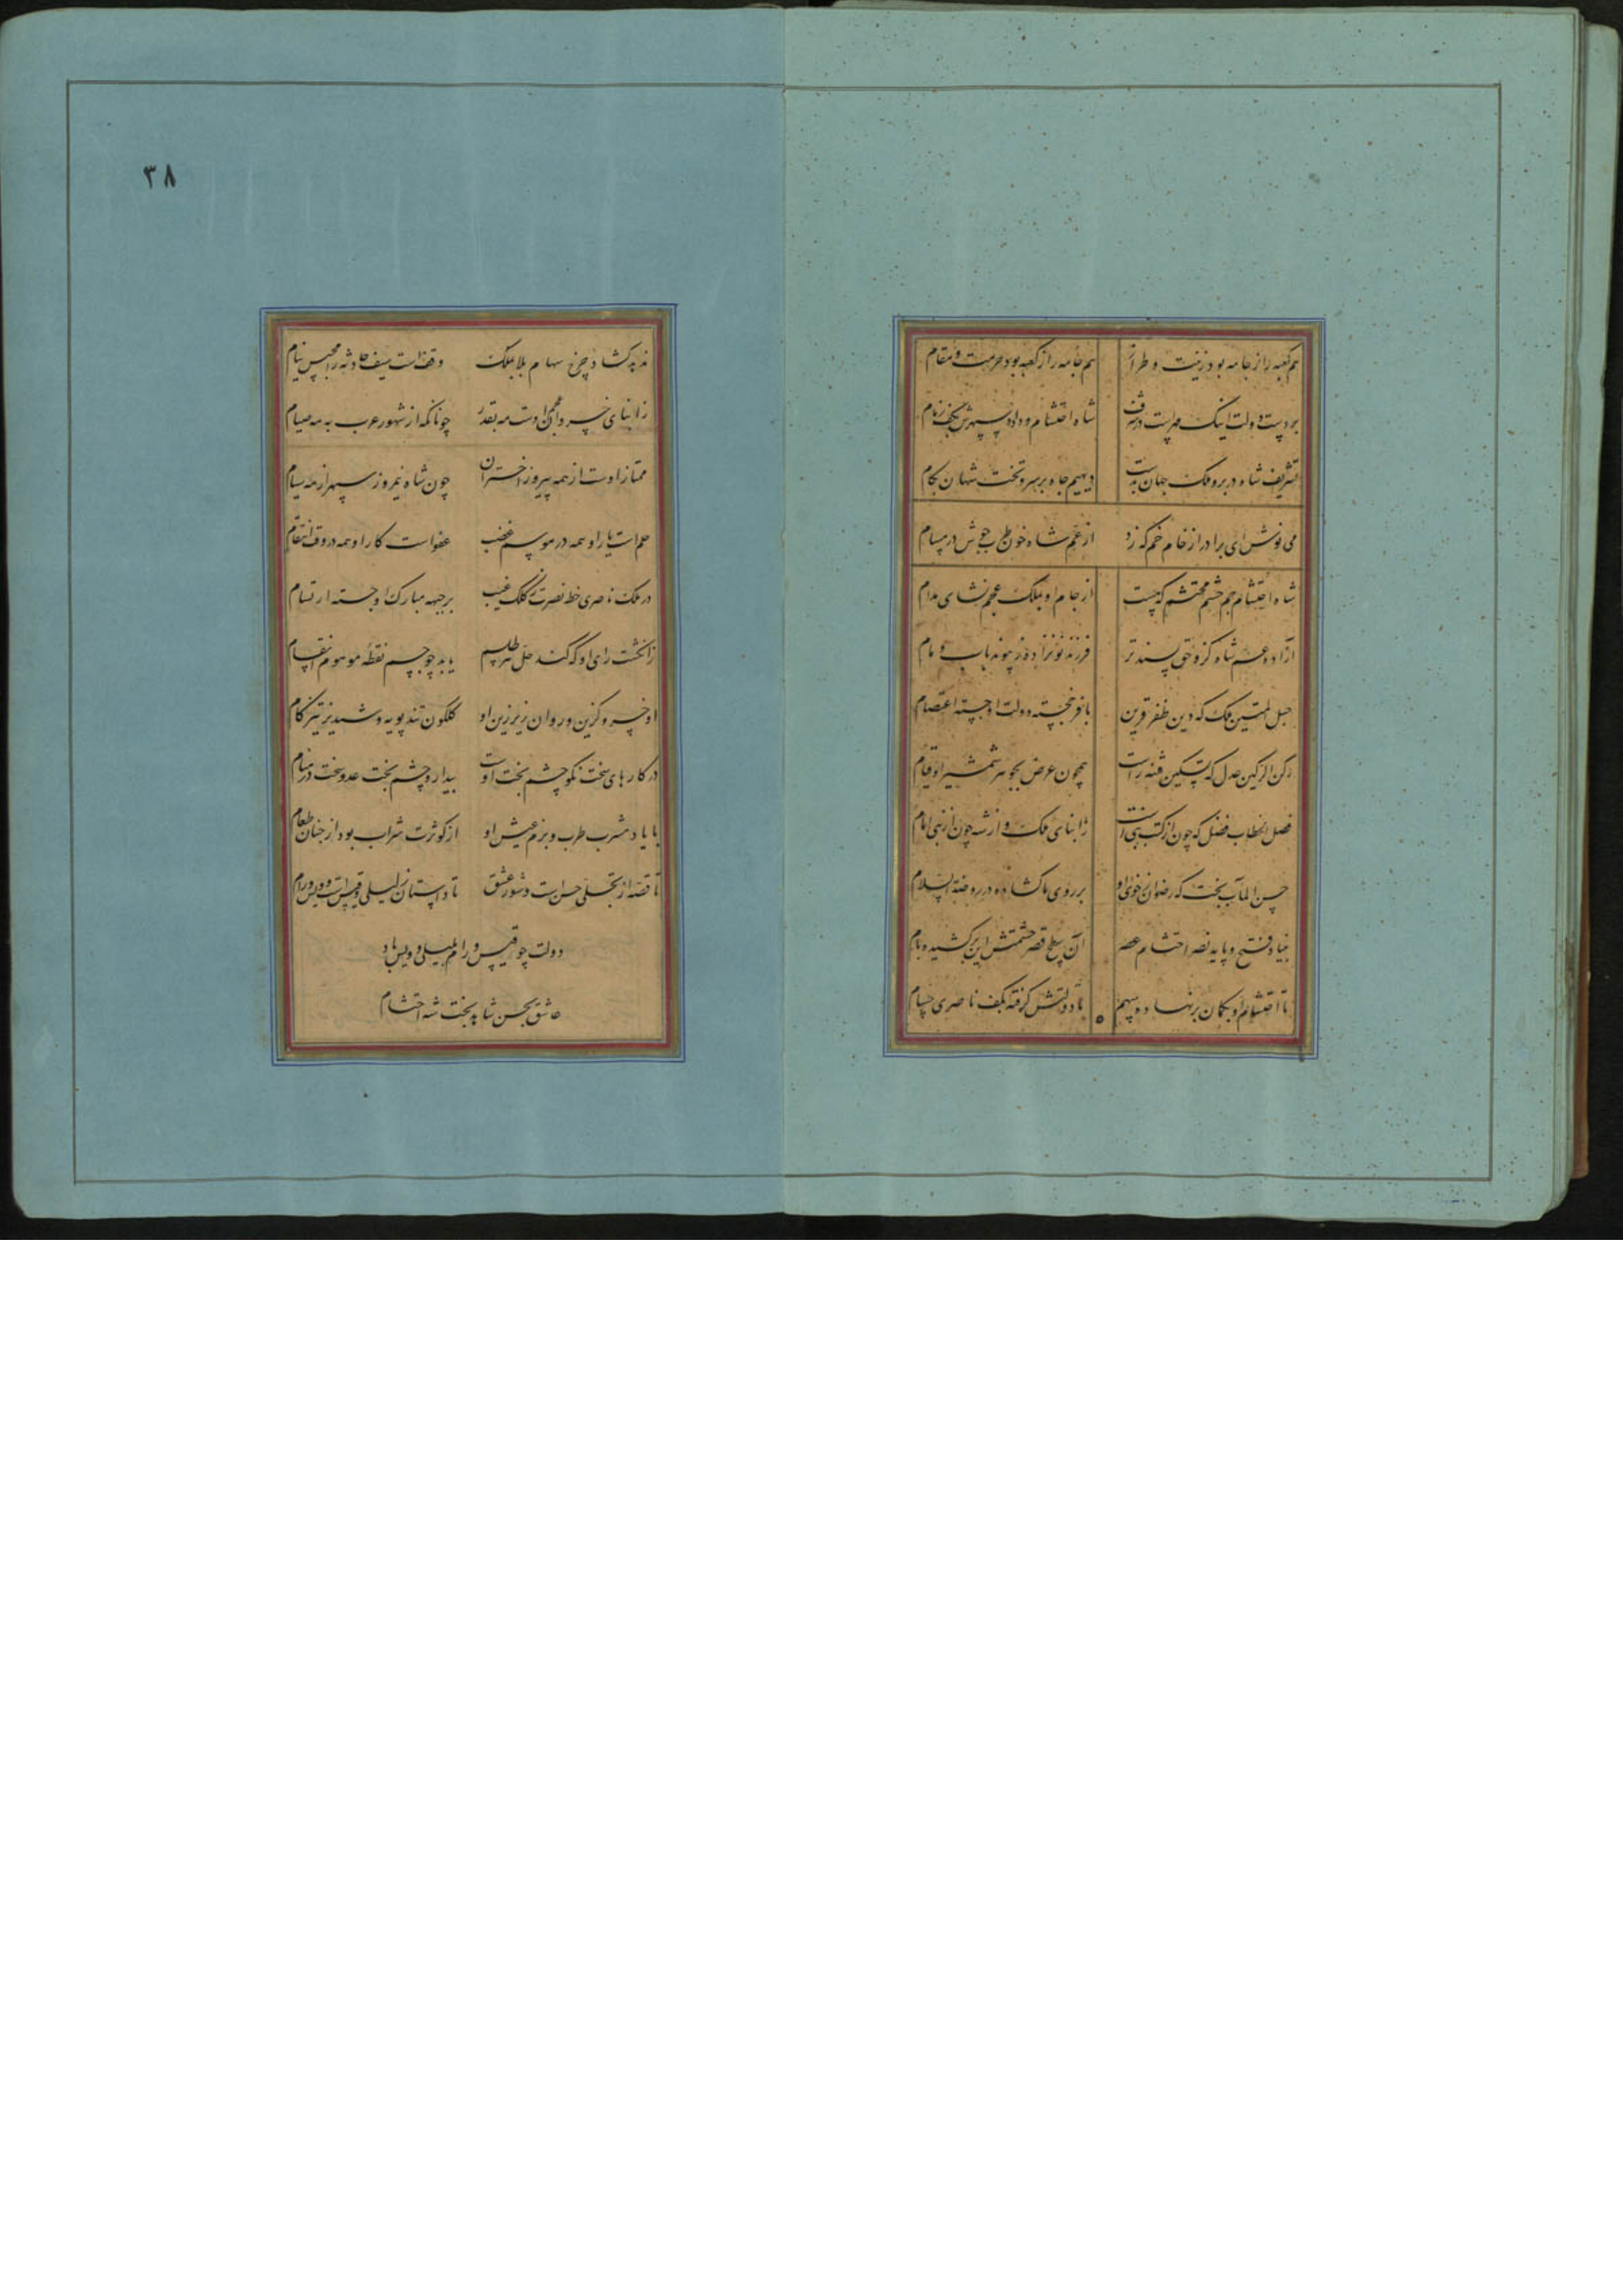 هم کعبه را ز جامه بود زینت و طراز هم جامه را ز کعبه بود حرمت و مقام
بر دست دولت اینک شاه احتشام و داده سپهرش بکف زمام
تشریف شاه در بر و ملک جهان بدست دیهیم جاه بر سر و تخت شهان بکام
می نوش ای برادر از خام خم که زد از عم شاه خون جوش در مسام
شاه احتشام جم حشم محتشم که چست از جام او بملک عجم نشای مدام
آزاده عم شاه کزو حق پسندتر فرزند نو نزاده ز پیوند باب و مام
حبل المتین ملک که دین ظفر قرین بافر خجسته دولت او جسته اعتصام
رکن الرکین عدل که تسکین فتنه راست همچون عرض بجوهر شمشیر او قیام
فصل الخطاب فضل که چون از کتب نبی است ز ابنای ملک و ارشه چون از نبی امام
حسن المآب بخت که رضوان ز خوی او بر روی ما گشاده در روضة السلام
بنیاد فتح و پایه نصر احتشام عصر آن سطح قصر حشمتش این بر کشیده بام
تا احتشام او بکمان بر نهاده سهم تا دولتش گرفته بکف ناصری حسام
۳۸
ندهد گشاد چرخ سهام بلا بملک وقف است سیف حادثه را حبس نیام
ز ابنای خسروان عجم اوست مه بقدر چونانکه از شهور عرب به مه صیام
ممتاز اوست از همه پیروز اختران چون شاه نیمروز سپهر از مه سیام
حلم است یار او همه در موسم غضب عفو است کار او همه در وقت انتقام
در ملک ناصری خط نصرت ز کلک غیب بر جبهه مبارک او جسته ارتسام
ز انگشت رای او که کند حل هر طلسم یابد چو جسم نقطه موهوم انقسام
او خسرو گزین و روان زیر زین او گلگون تند پویه و شبدیز تیز گام
در کارهای سخت نکو چشم بخت اوست بیدار و چشم بخت عدو سخت در منام
با یاد شرب طرب و بزم عیش او از کوثرت شراب بود از جنان طعام
تا قصه از تجلی حسن است و شور عشق تا داستان ز لیلی و قیس است و ویس و رام
دولت چو قیس و رام بلیلی و ویس باد
عاشق بحسن شاهد بخت شه احتشام